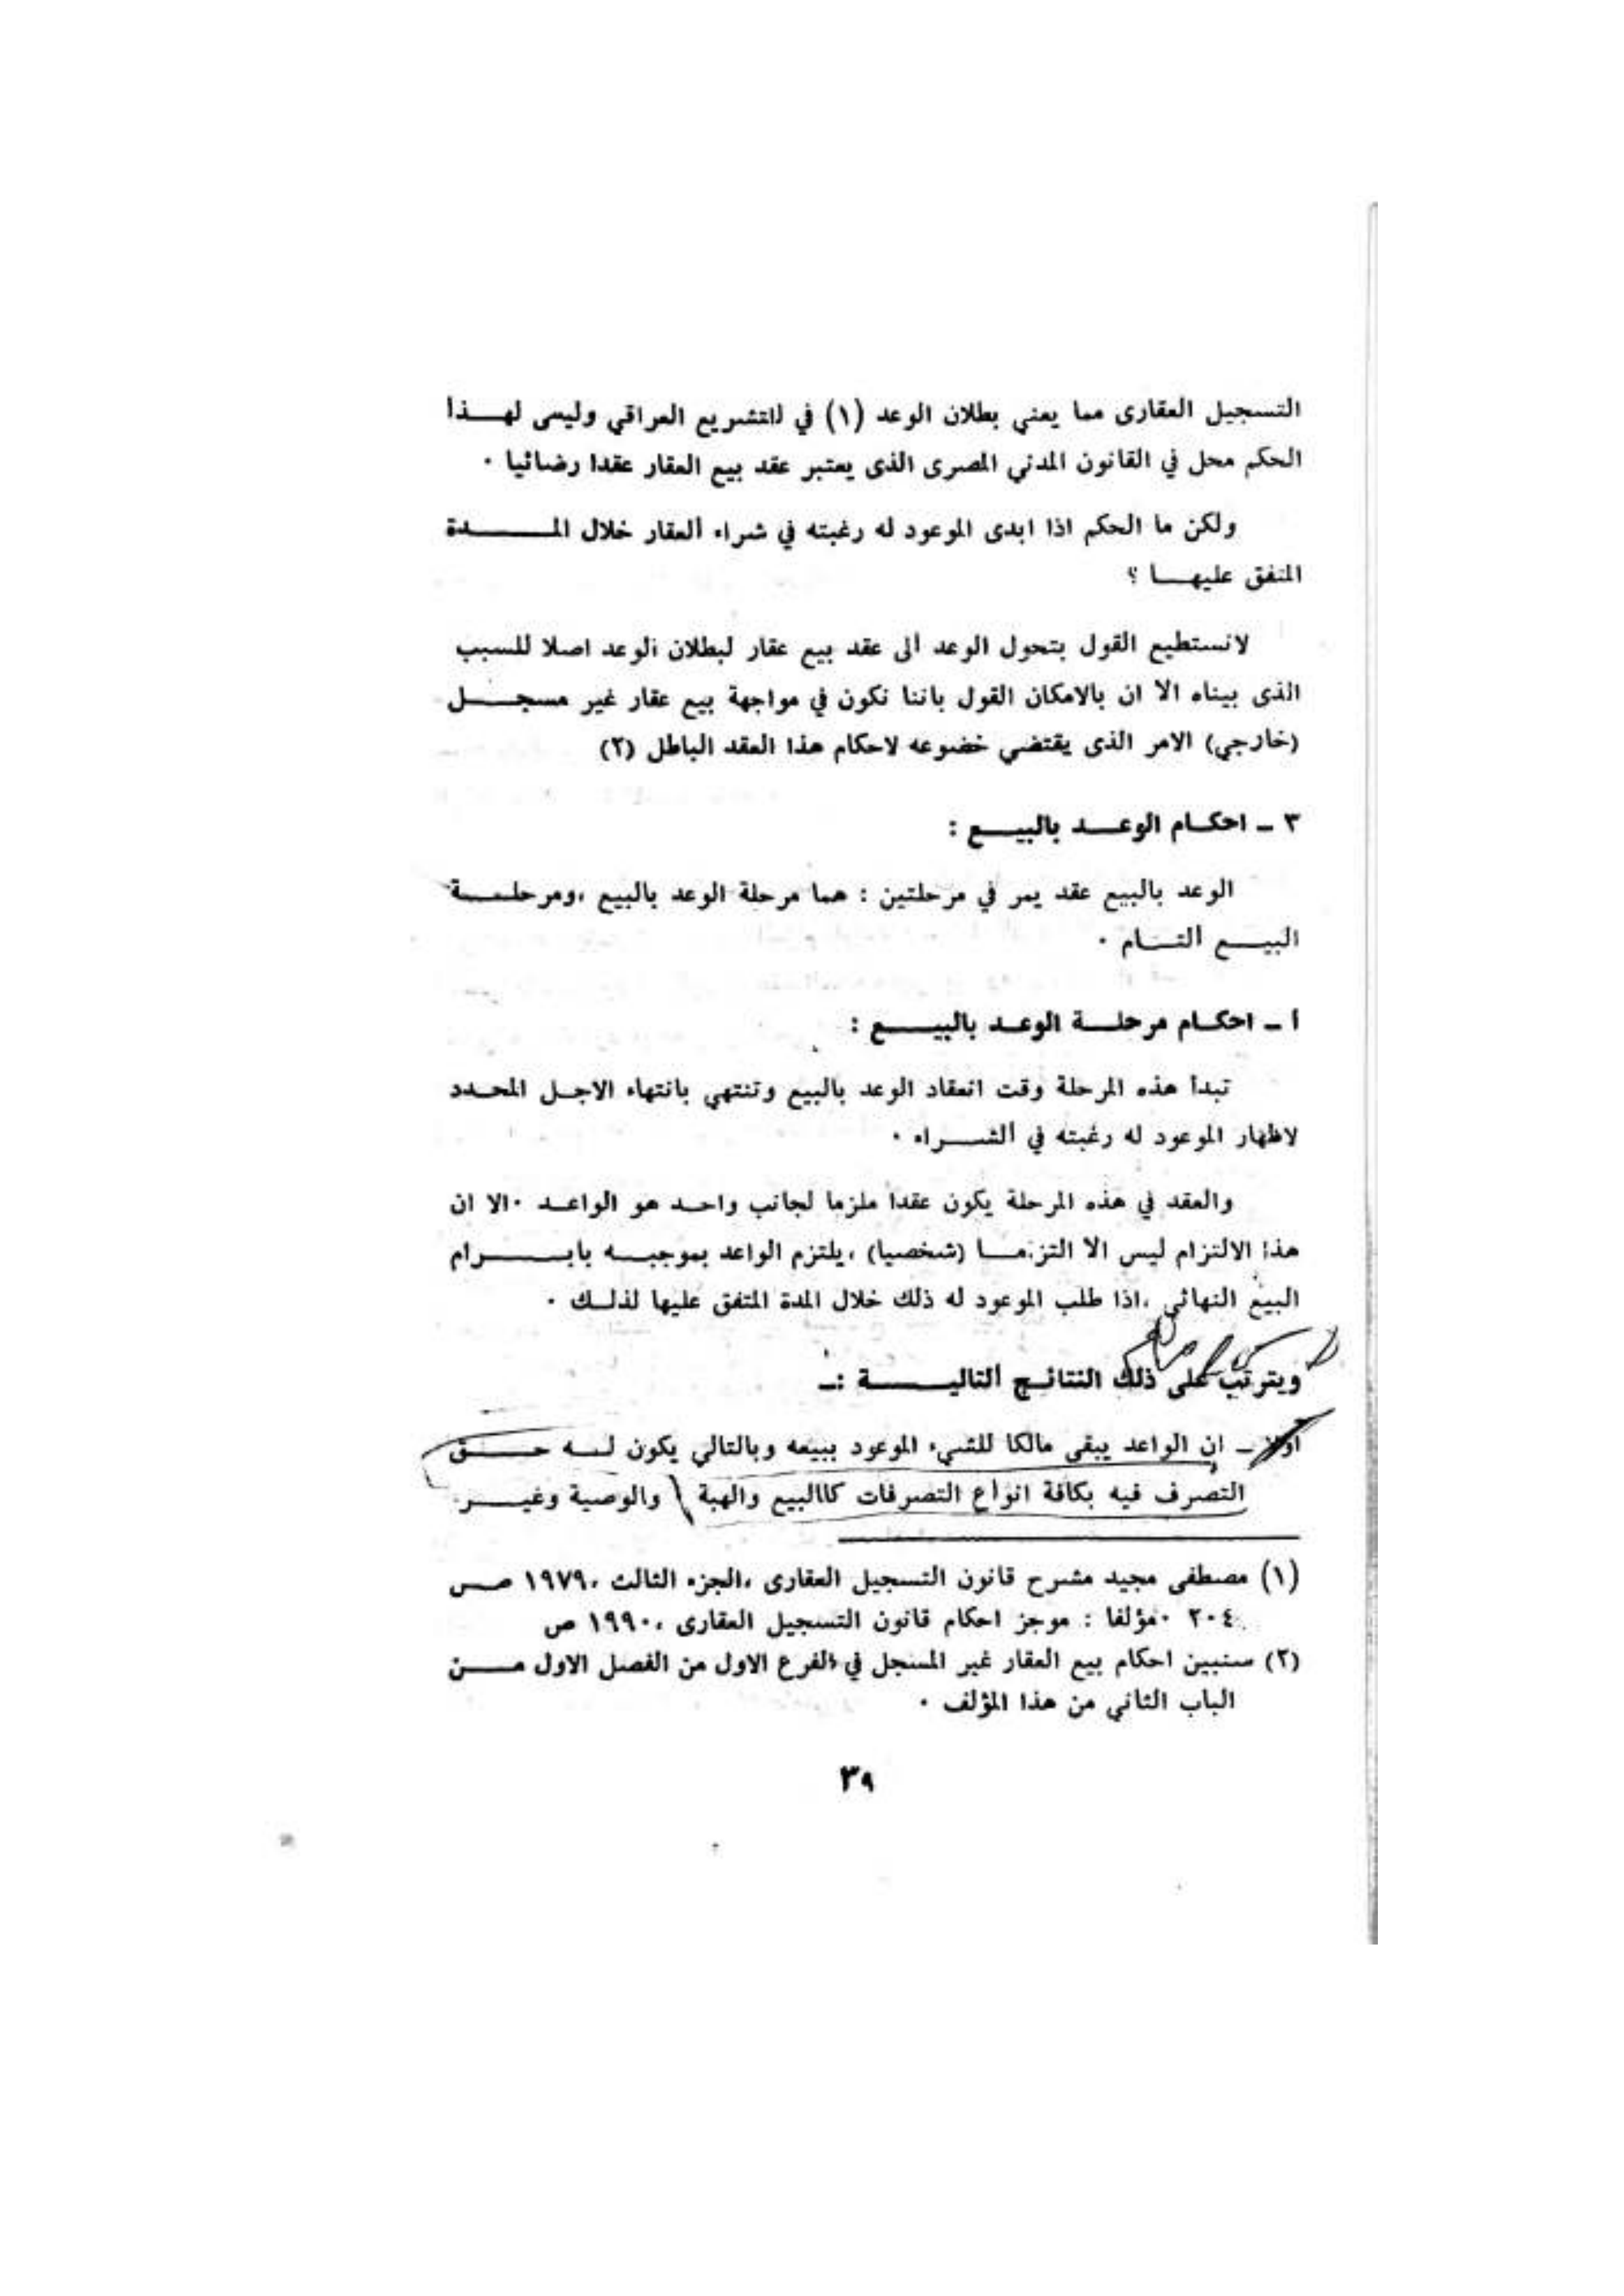 التسجيل العقارى مما يعني بطلان الوعد (١) في التشريع العراقي وليس لهـــذا
الحكم محل في القانون المدني المصرى الذى يعتبر عقد بيع العقار عقدا رضائيا ٠
ولكن ما الحكم اذا ابدى الموعود له رغبته في شراء العقار خلال المـــــدة
المتفق عليهـــا ؟
لانستطيع القول بتحول الوعد الى عقد بيع عقار لبطلان الوعد اصلا للسبب
الذى بيناه الا ان بالامكان القول باننا نكون في مواجهة بيع عقار غير مسجـــل
(خارجي) الامر الذى يقتضي خضوعه لاحكام هذا العقد الباطل (٢)
٣ ــ احكـام الوعـــد بالبيـــع :
الوعد بالبيع عقد يمر في مرحلتين : هما مرحلة الوعد بالبيع ،ومرحلـــة
البيـــع التـــام ٠
أ ــ احكـام مرحلـــة الوعـد بالبيـــــع :
تبدأ هذه المرحلة وقت انعقاد الوعد بالبيع وتنتهي بانتهاء الاجـل المحـدد
لاظهار الموعود له رغبته في الشـــراء ٠
والعقد في هذه المرحلة يكون عقدا ملزما لجانب واحـد هو الواعـد ٠الا ان
هذا الالتزام ليس الا التزامـــا (شخصيا) ،يلتزم الواعد بموجبـــه بابـــــرام
البيع النهائي ،اذا طلب الموعود له ذلك خلال المدة المتفق عليها لذلـك ٠
ويترتب على ذلك النتائـج التاليـــــــة :ــ
اولا ــ ان الواعد يبقى مالكا للشيء الموعود ببيعه وبالتالي يكون لـــه حـــق
التصرف فيه بكافة انواع التصرفات كاالبيع والهبة والوصية وغيـــر
(١) مصطفى مجيد مشرح قانون التسجيل العقارى ،الجزء الثالث ،١٩٧٩ صــس
٢٠٤ ٠مؤلفا : موجز احكام قانون التسجيل العقارى ،١٩٩٠ ص
(٢) سنبين احكام بيع العقار غير المسجل في الفرع الاول من الفصل الاول مـــن
الباب الثاني من هذا المؤلف ٠
٣٩